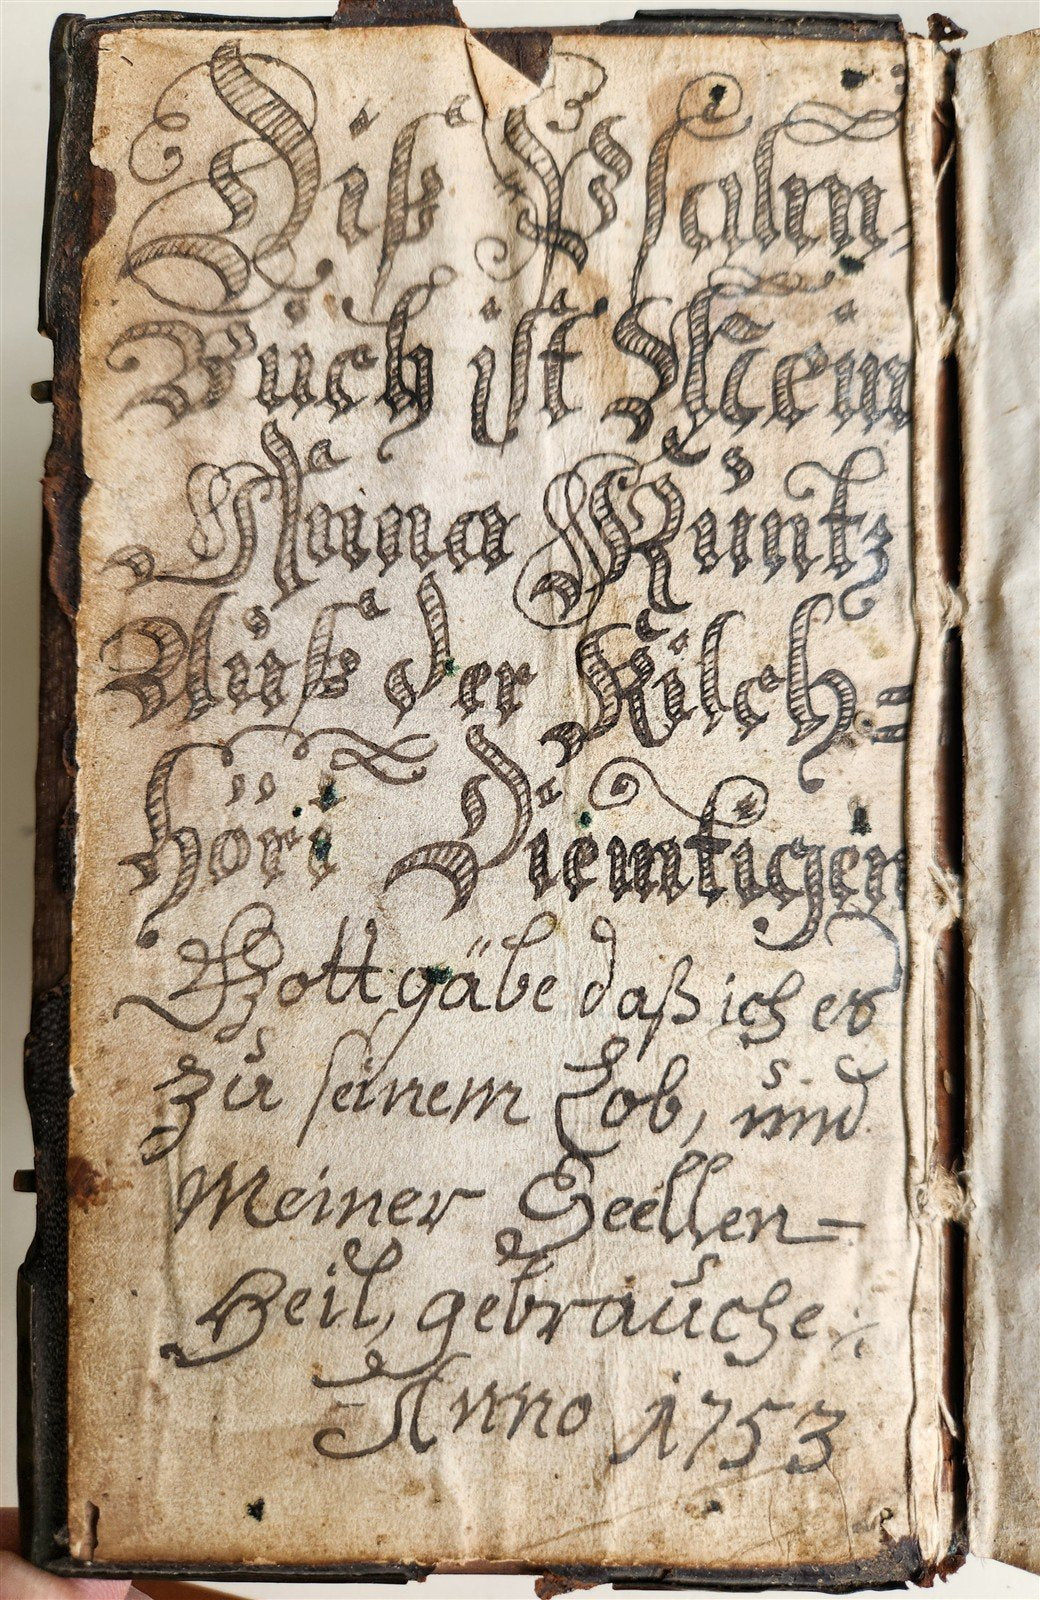 Diß Psalm-
Buch ist Mein
Anna Kuntz
Auß der Kilch=
höri Diemtigen
Gott gäbe daß ich es
zu seinem Lob, und
Meiner Seellen-
Heil, gebrauche
Anno 1753